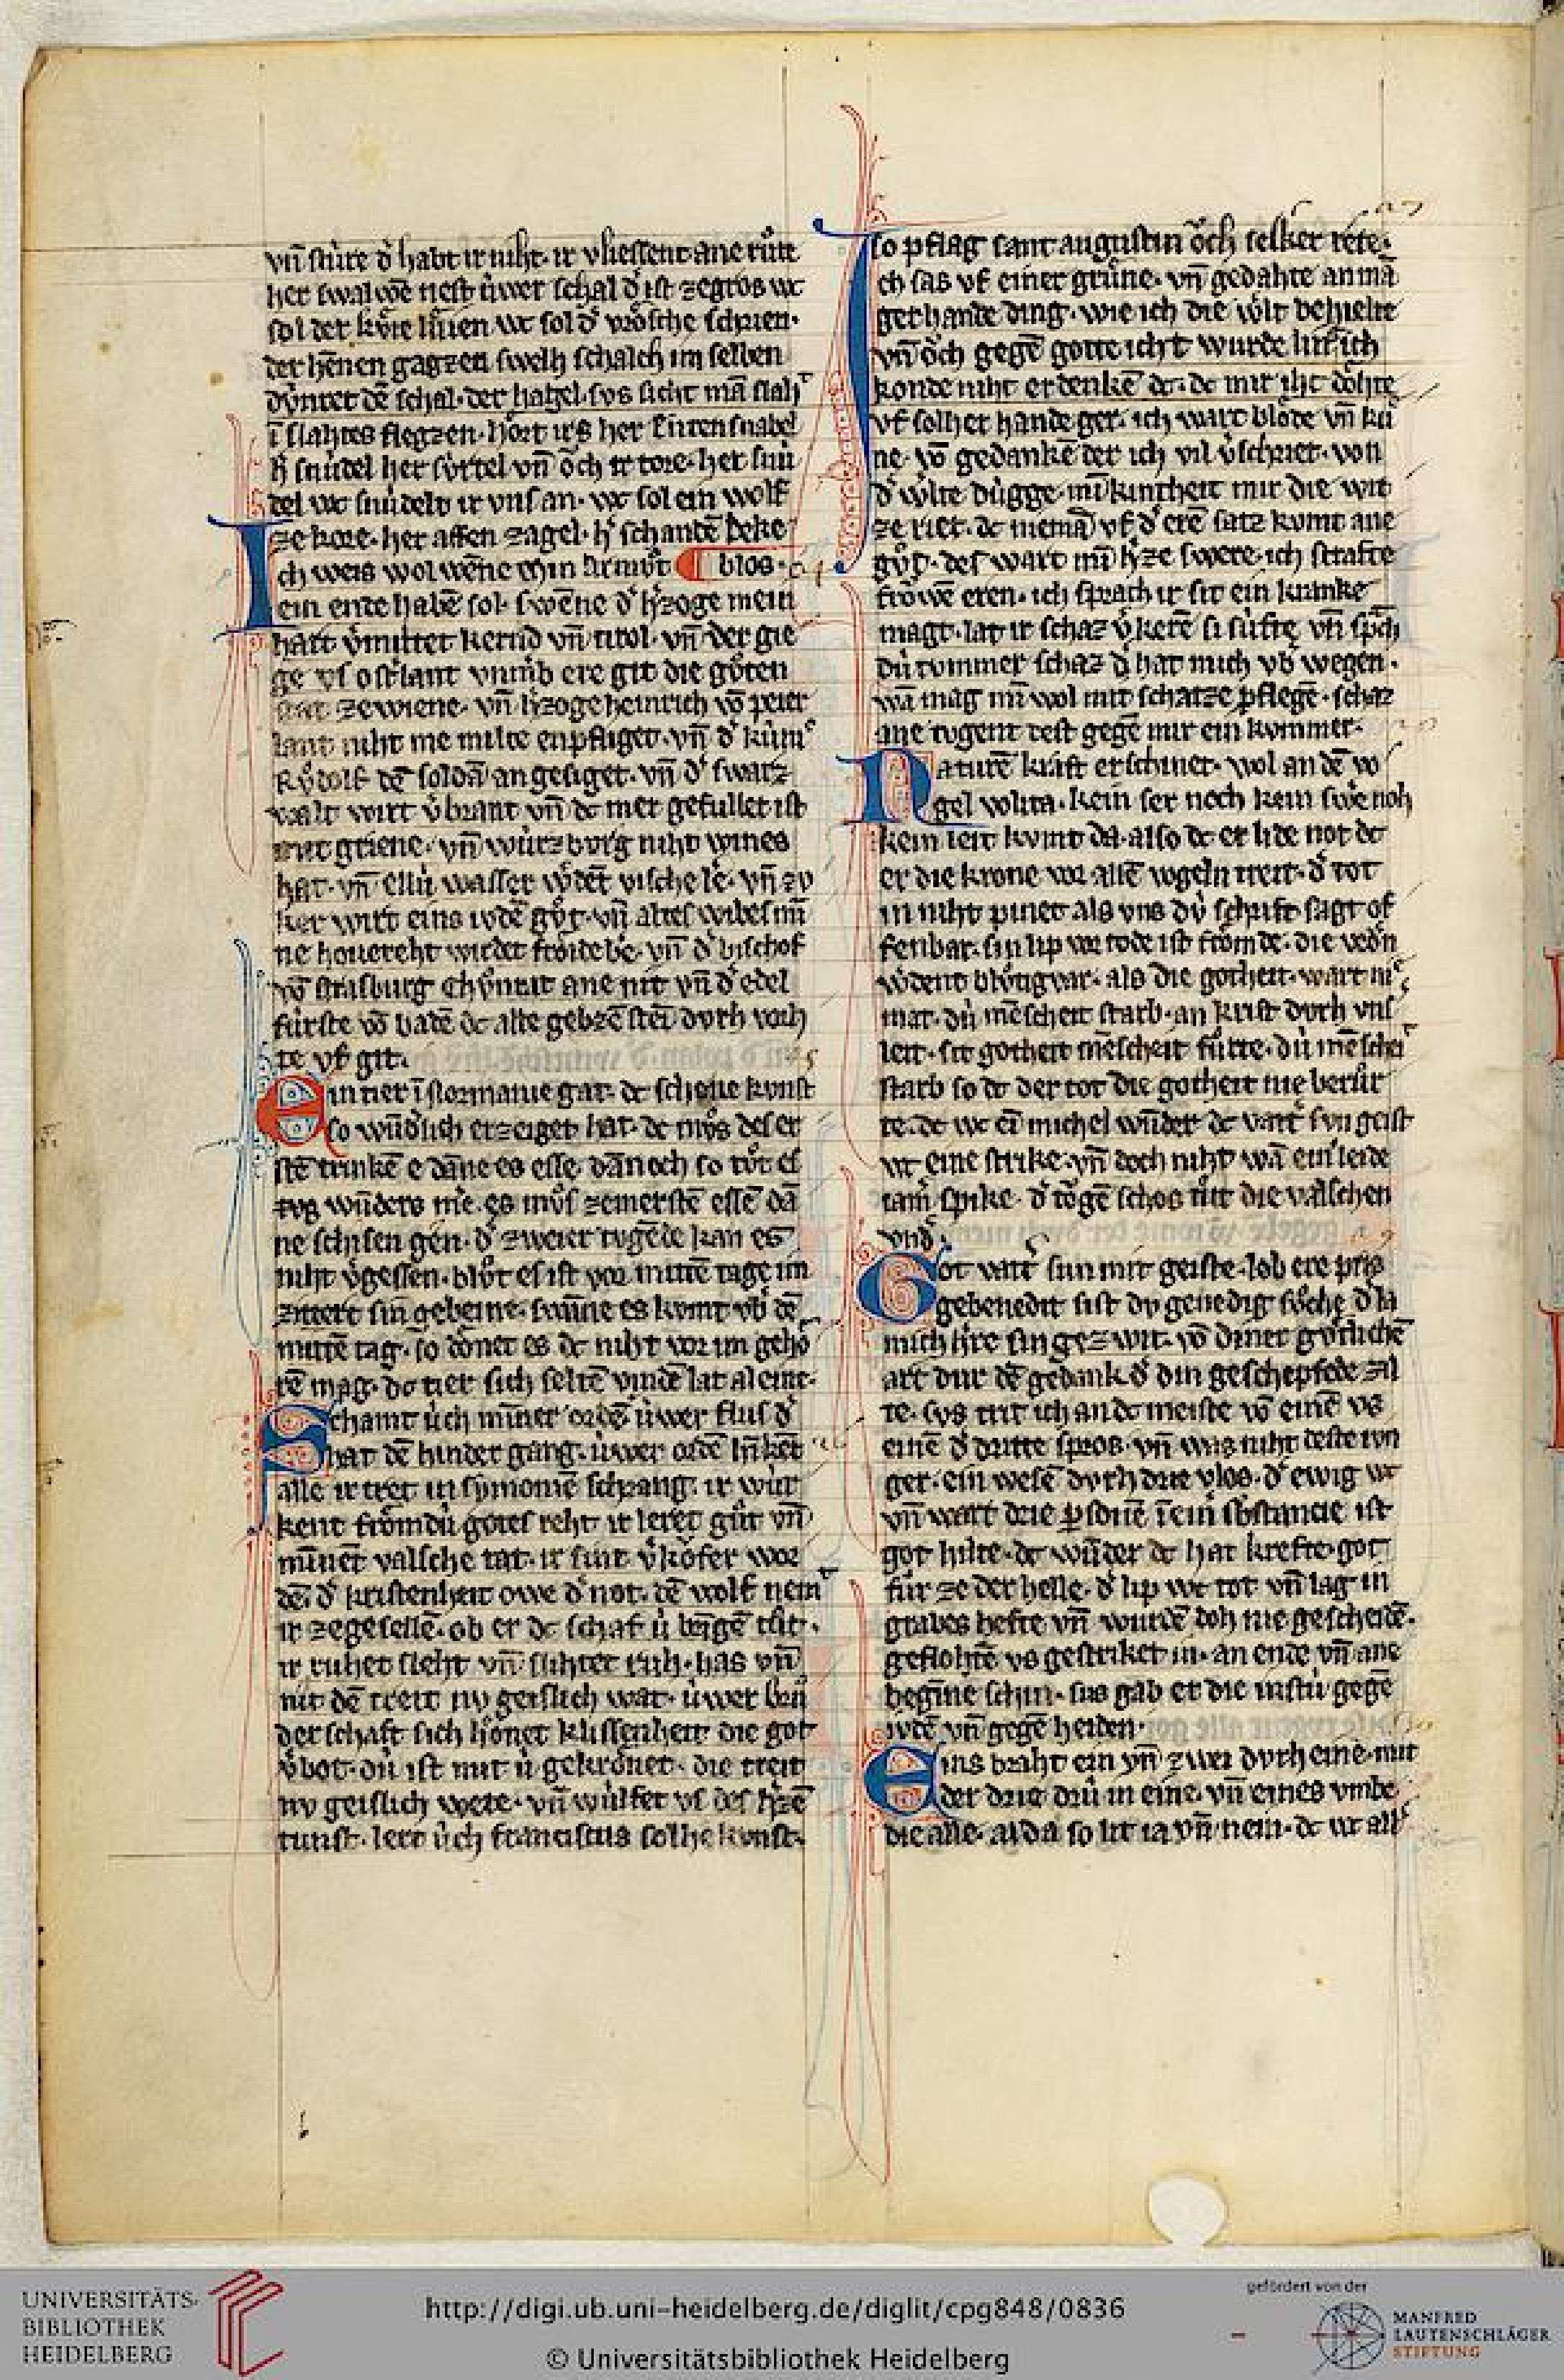 vn̄ stúre d᷑ habt ir niht· ir vliessent ane růte
her swalwē nest úwer schal d᷑ ist ze gros wc
sol der kv̊ie lúien wc sol d᷑ vrösche schrien·
der hēnen gagzen swelh schalch im selben
dv́ncet dē schal· der hagel· svs siht mā slah᷑
ī slahtes flegzen· hôrt irs her Entensnabel
h᷑ snúdel her sv́rtel vn̄ ŏch ir tore· her snú
del wc snúdelt ir vns an· wc sol ein wolf
ze kore· her affen zagel· h᷑ schandē deke
Ich weis wol wēne min Armůt ¶ blos·
ein ende habē sol· swēne d᷑ h᷑zoge mein
hart v᷑mittet kernd᷑ vn̄ tirol· vn̄ der gie
ge vf ostlant vnmb ere git die gůten
stat ze wiene· vn̄ h᷑zoge heinrich vō peier
lant niht me milte enpfliget· vn̄ d᷑ kúni᷑
Rv̊dolf dē soldā an gesiget· vn̄ d᷑ swarz
walt wirt v᷑brant vn̄ dc mer gefullet ist
mit griene· vn̄ wúrzbvrg niht wines
hat· vn̄ ellú wasser w᷑dēt vische le᷑· vn̄ zv
ker wirt eins ivdē gůt· vn̄ altes wibes mī
ne houereht wirdet frôide be᷑· vn̄ d᷑ bischof
vō strasburg Chv̊nrat ane nit vn̄ d᷑ edel
fúrste vō badē dc alte gebzēstei dvrh vorh
te vf git·
Ein tier ī normanie gat· dc schone kvnst
so wūd᷑lich erzeiget hat· dc můs des er
stē trinkē e dāne es esse· dānoch so tůt es
tvs wūders me· es můs zemerstē essē dā
ne schlsen gen· d᷑ zweier tvgēde kan es
niht v᷑gessen· blůt es ist vor mittē tage im
zittert sin gebeine· swāne es komt vb᷑ dē
mittē tag· so dônet es dc niht vor im gehô
rē mag· dc tier sich seltē vindē lat aleine·
Schamt úch mīner ordē úwer flus d᷑
hat dē hinder gang· úwer ordē hīket
alle ir tret in symonīe schrang· ir wúr
kent frômdú gotes reht ir leret gůt vn̄
mīnēt valsche tat· ir sint v᷑kôfer wor
dē· d᷑ kristenheit owe d᷑ not· dē wolf nem᷑
ir ze gesellē· ob er dc schaf ú bringē tůt·
ir ruhet sleht vn̄ slihtet ruh· has vn̄
nit dē treit nv geislich wat· úwer brů
derschaft sich hônet klussenheit die got
v᷑bot· dú ist mit ú gekrônet· die treit
nv geislich wete· vn̄ wúlfet vf des h᷑zē
tunst· lert úch franciscus solhe kvnst·
so pflag sant augustin ŏch selker rete·
Ich sas vf einer grúne· vn̄ gedahte an mā
gerhande ding· wie ich die w᷑lt behielte
vn̄ ŏch gegē gotte icht wurde lut᷑ ich
konde niht erdenkē dc· dc mir iht dôhte
vf solher hande ger· ich wart blôde vn̄ kú
ne· vō gedankē der ich vil v᷑schriet· von
d᷑ w᷑lte dúgge· mī kintheit mir die wit
ze riet· dc niemā vf d᷑ erē satz komt ane
gůt· des wart mī h᷑ze swere· ich strafte
frowē eren· ich sprach ir sit ein kranke
magt· lat ir schaz v᷑kerē si súfte vn̄ sp᷑ch
dú tvmmer schaz d᷑ hat mich vb᷑ wegen·
wā mag mī wol mit schatze pflegē· schaz
ane tvgent dest gegē mir ein kvmmer·
Naturē kraft erschinet· wol an dē vo
gel volita· kein ser noch kein swe᷑ noh
kein leit komt da· also dc er lide not dc
er die krone vor allē vogeln treit· d᷑ tot
in niht pinet als vns dú schrift sagt of
fenbar· sin lip vor tode ist frômde· die ved᷑n
w᷑dent blůtig var· als die gotheit· wart nie
mar· dú mēscheit starb· an krist dvrh vns᷑
leit· sit gotheit mēscheit fůrte· dú mēschei
starb so dc der tot die gotheit nie berůr
te· dc wc ei michel wūder dc vatt᷑ svn geist
wc eine strike· vn̄ doch niht wā ein leide
iam᷑ spike· d᷑ tôgē schos trit die valschen
vnd᷑·
Got vatt᷑ sun mit geiste· lob ere pris
gebenedit sist dv genedig sv̊che d᷑ la
mich hre sin gezwit· vō diner gôtlichē
art dur dē gedank d᷑ din geschepfede zil
te· svs trit ich an dc meiste vō einē vs
einē d᷑ dritte spros· vn̄ was niht deste ivn
ger· ein wesē dvrh drie vlos· d᷑ ewig wc
vn̄ wart drie p᷑sonē ī ein᷑ sbstancie ist
got hilte· dc wūder dc hat krefte· got
fůr ze der helle· d᷑ lip wc tot vn̄ lag in
grabes hefte vn̄ wurdē doh nie gescheidē·
geflohtē vs gestriket in· an ende vn̄ ane
begīne schin· sus gab er die instú gegē
ivdē vn̄ gegē heiden·
Eins braht ein vn̄ zwei dvrh eine· mit
der drie drú in eine· vn̄ eines vmbe
die alle· alda so lit ia vn̄ nein· dc wc all᷑
UNIVERSITÄTS-
BIBLIOTHEK
HEIDELBERG
http://digi.ub.uni-heidelberg.de/diglit/cpg848/0836
© Universitätsbibliothek Heidelberg
gefördert von der
MANFRED
LAUTENSCHLÄGER
STIFTUNG